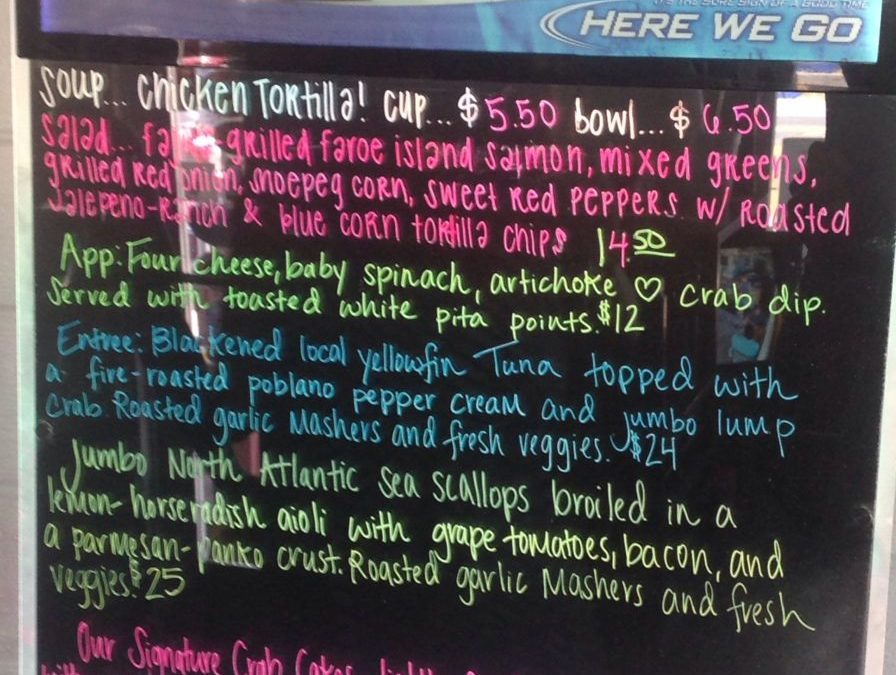 IT'S THE SURE SIGN OF A GOOD TIME
HERE WE GO
Soup... Chicken Tortilla! cup... $5.50 bowl... $6.50
Salad... grilled faroe island salmon, mixed greens,
grilled red onion, snoepeg corn, sweet red peppers w/ Roasted
Jalepeno-Ranch & blue corn tortilla chips 14.50
App: Four cheese, baby spinach, artichoke ♡ crab dip.
Served with toasted white pita points. $12
Entree: Blackened local yellowfin Tuna topped with
a fire-roasted poblano pepper cream and jumbo lump
crab. Roasted garlic Mashers and fresh veggies. $24
Jumbo North Atlantic Sea Scallops broiled in a
lemon-horseradish aioli with grape tomatoes, bacon, and
a parmesan-panko crust. Roasted garlic Mashers and fresh
veggies. $25
Our Signature Crab Cakes